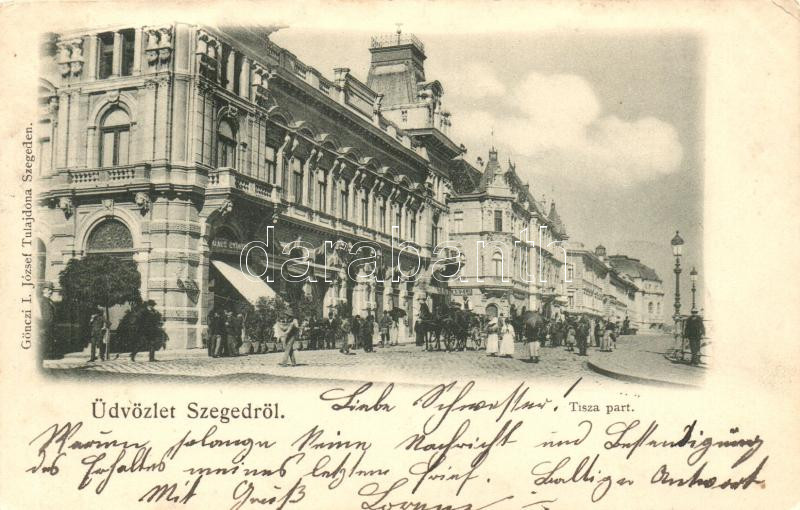 Gönczi I. József Tulajdona Szegeden.
darabanth
Üdvözlet Szegedröl.
Tisza part.
Liebe Schwester!
Warum solange keine Nachricht und Bestendigung
des Erhaltes meines letzten Brief. Baltiger Antwort
Mit Gruß Lorenz